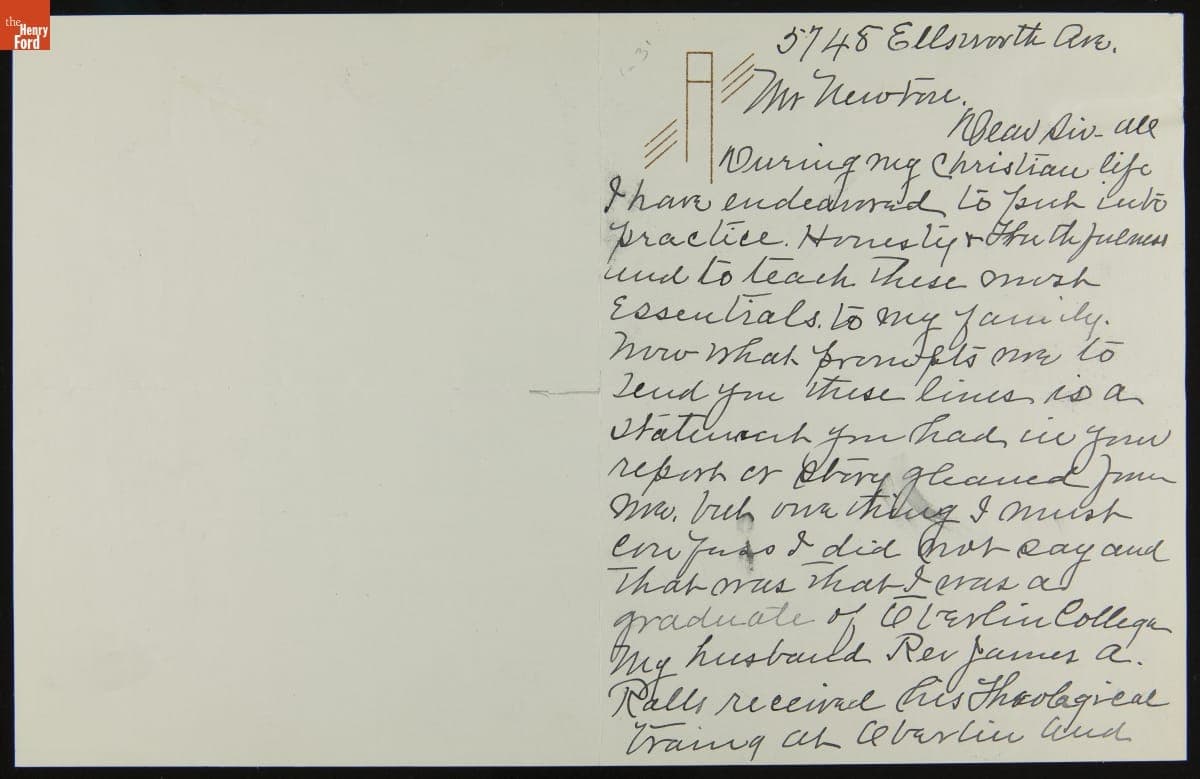 the
Henry
Ford
5748 Ellsworth Ave.
Mr Newton.
Dear Sir - all
During my Christian life
I have endeavored to put into
practice. Honesty & Thuthfulness
and to teach these most
Essentials. to my family.
Now what prompts me to
send you these lines is a
statement you had in your
report or story gleaned from
me. but one thing I must
confess I did not say and
that was that I was a
graduate of Oberlin College
My husband Rev James A.
Ralls received his Theological
traing at Oberlin and